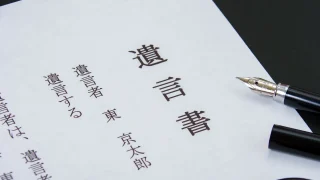 遺言書
遺言者 東 京太郎
遺言する
言者は、遺言者